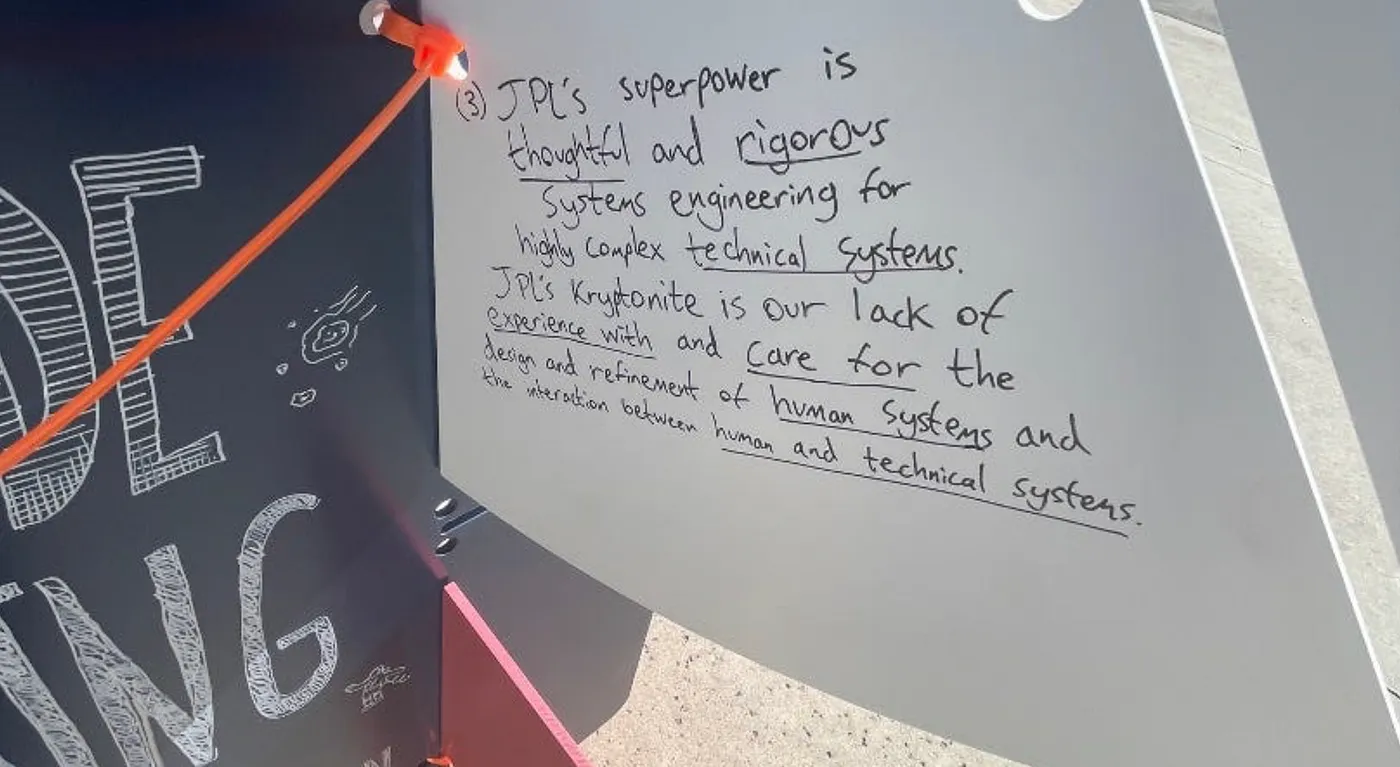 DE
ING
(3) JPL's superpower is
thoughtful and rigorous
systems engineering for
highly complex technical systems.
JPL's Kryptonite is our lack of
experience with and care for the
design and refinement of human systems and
the interaction between human and technical systems.